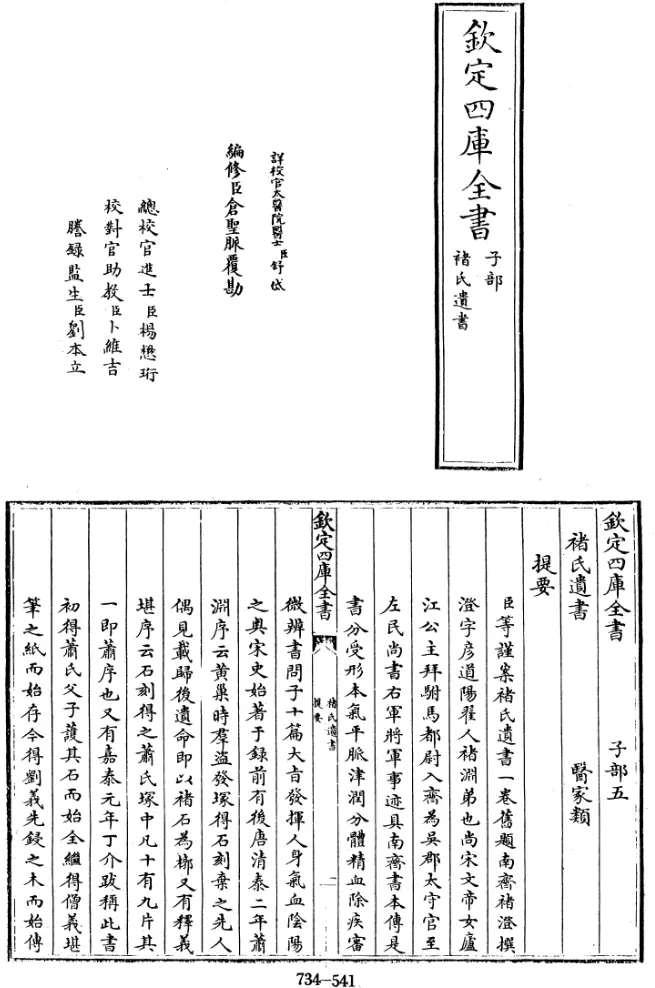 欽定四庫全書
子部
褚氏遺書
詳校官太醫院醫士臣舒岱
編修臣倉聖脈覆勘
總校官進士臣楊懋珩
校對官助教臣卜維吉
謄錄監生臣劉本立
欽定四庫全書 子部五
褚氏遺書 醫家類
提要
臣等謹案褚氏遺書一卷舊題南齊褚澄撰
澄字彦道陽翟人褚淵弟也尚宋文帝女廬
江公主拜駙馬都尉入齊為吳郡太守官至
左民尚書右軍將軍事迹具南齊書本傳是
書分受形本氣平脈津潤分體精血除疾審
欽定四庫全書
褚氏遺書
提要
一
微辨書問子十篇大旨發揮人身氣血陰陽
之奥宋史始著于録前有後唐清泰二年蕭
淵序云黄巢時羣盜發塚得石刻棄之先人
偶見載歸後遺命即以褚石為槨又有釋義
堪序云石刻得之蕭氏塚中凡十有九片其
一即蕭序也又有嘉泰元年丁介跋稱此書
初得蕭氏父子護其石而始全繼得僧義堪
筆之紙而始存今得劉義先鋟之木而始傳
734-541